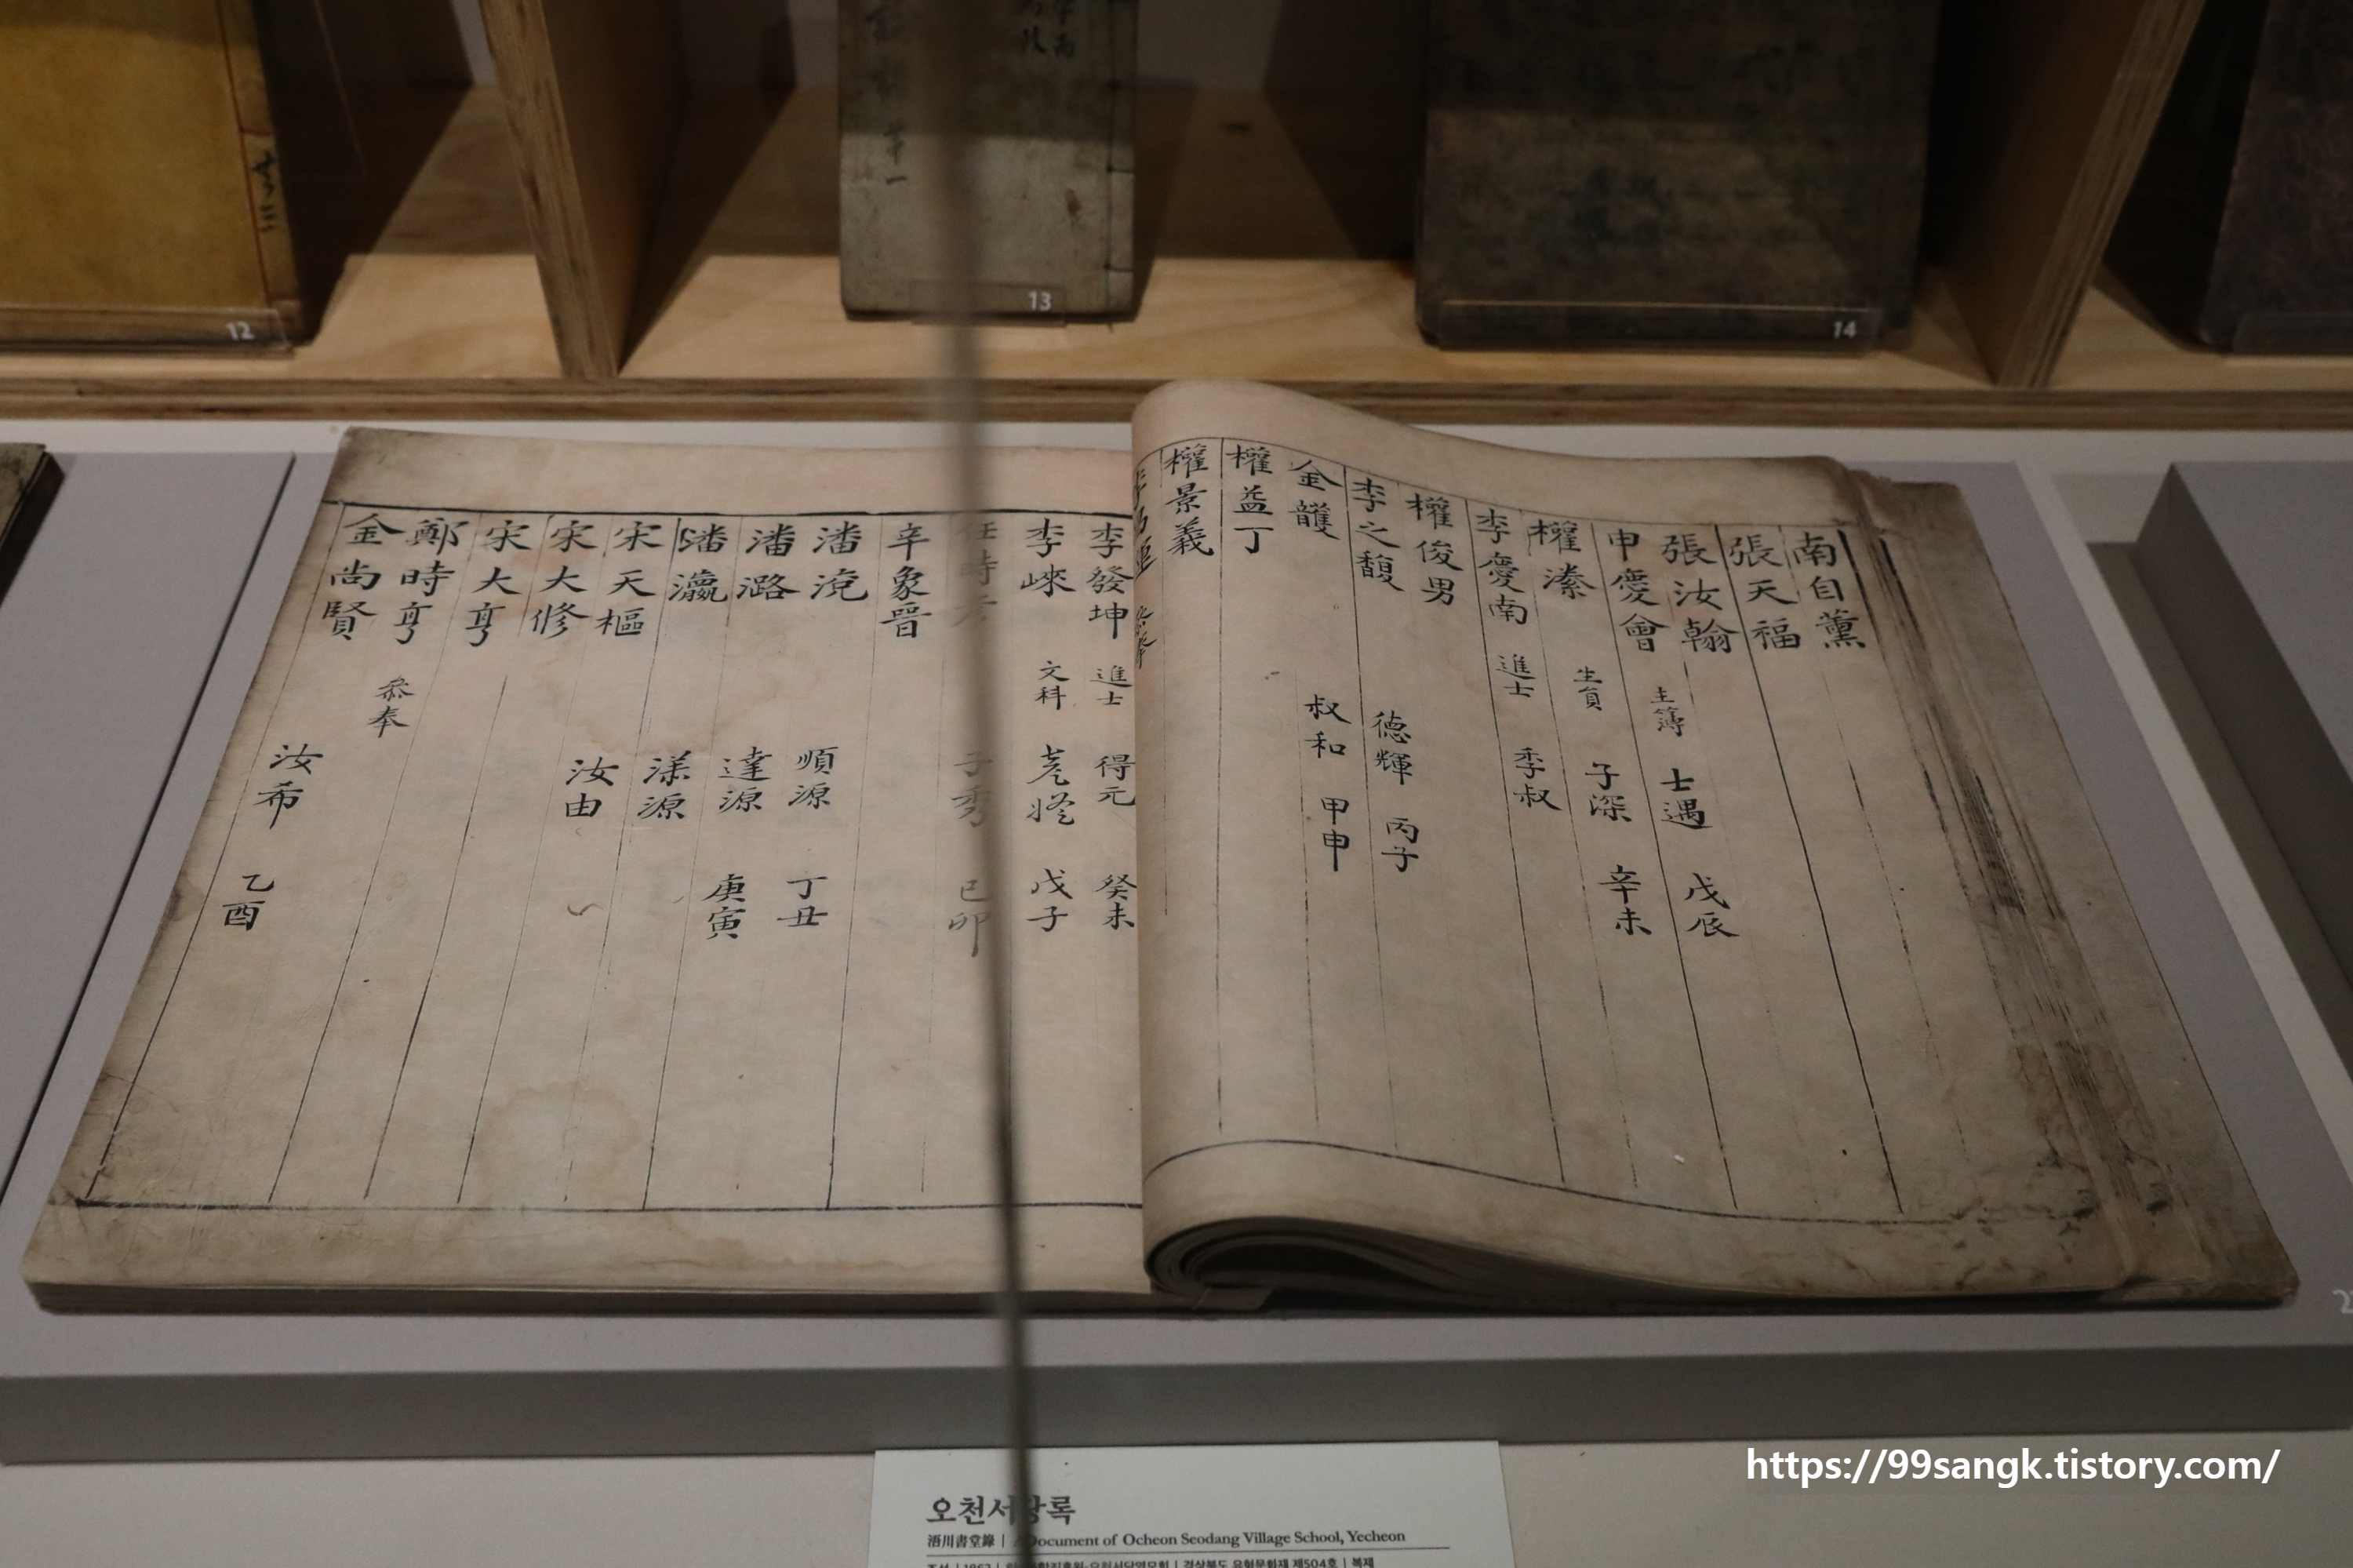 12
13
14
第一
南自薰
張天福
張汝翰 主簿 士遇 戊辰
申慶會 生員 子深 辛未
權溱
李慶南 進士 季叔
權俊男
李之馥 德輝 丙子
金頀 叔和 甲申
權益丁
權景義
李發坤 進士 得元 癸未
李崍 文科 戊子
任時 子秀 己卯
辛象晉
潘 順源 丁丑
潘潞 達源 庚寅
潘瀛 漾源
宋天樞 汝由
宋大修
宋大亨
鄭時亨 叅奉
金尚賢 汝希 乙酉
오천서당록
浯川書堂錄 | A Document of Ocheon Seodang Village School, Yecheon
경상북도 유형문화재 제504호 | 복제
https://99sangk.tistory.com/